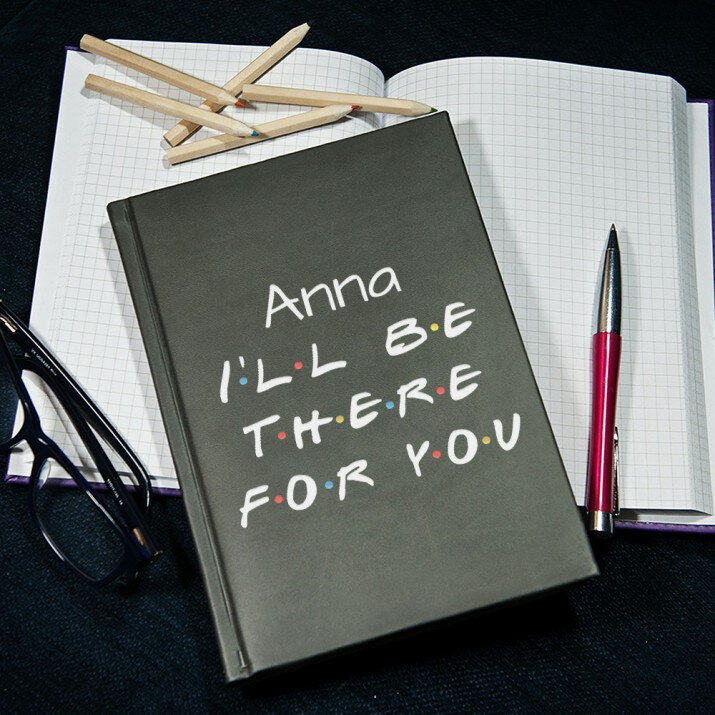 Anna
I'L•L BE
T•H•E•R•E
F•O•R Y•O•U